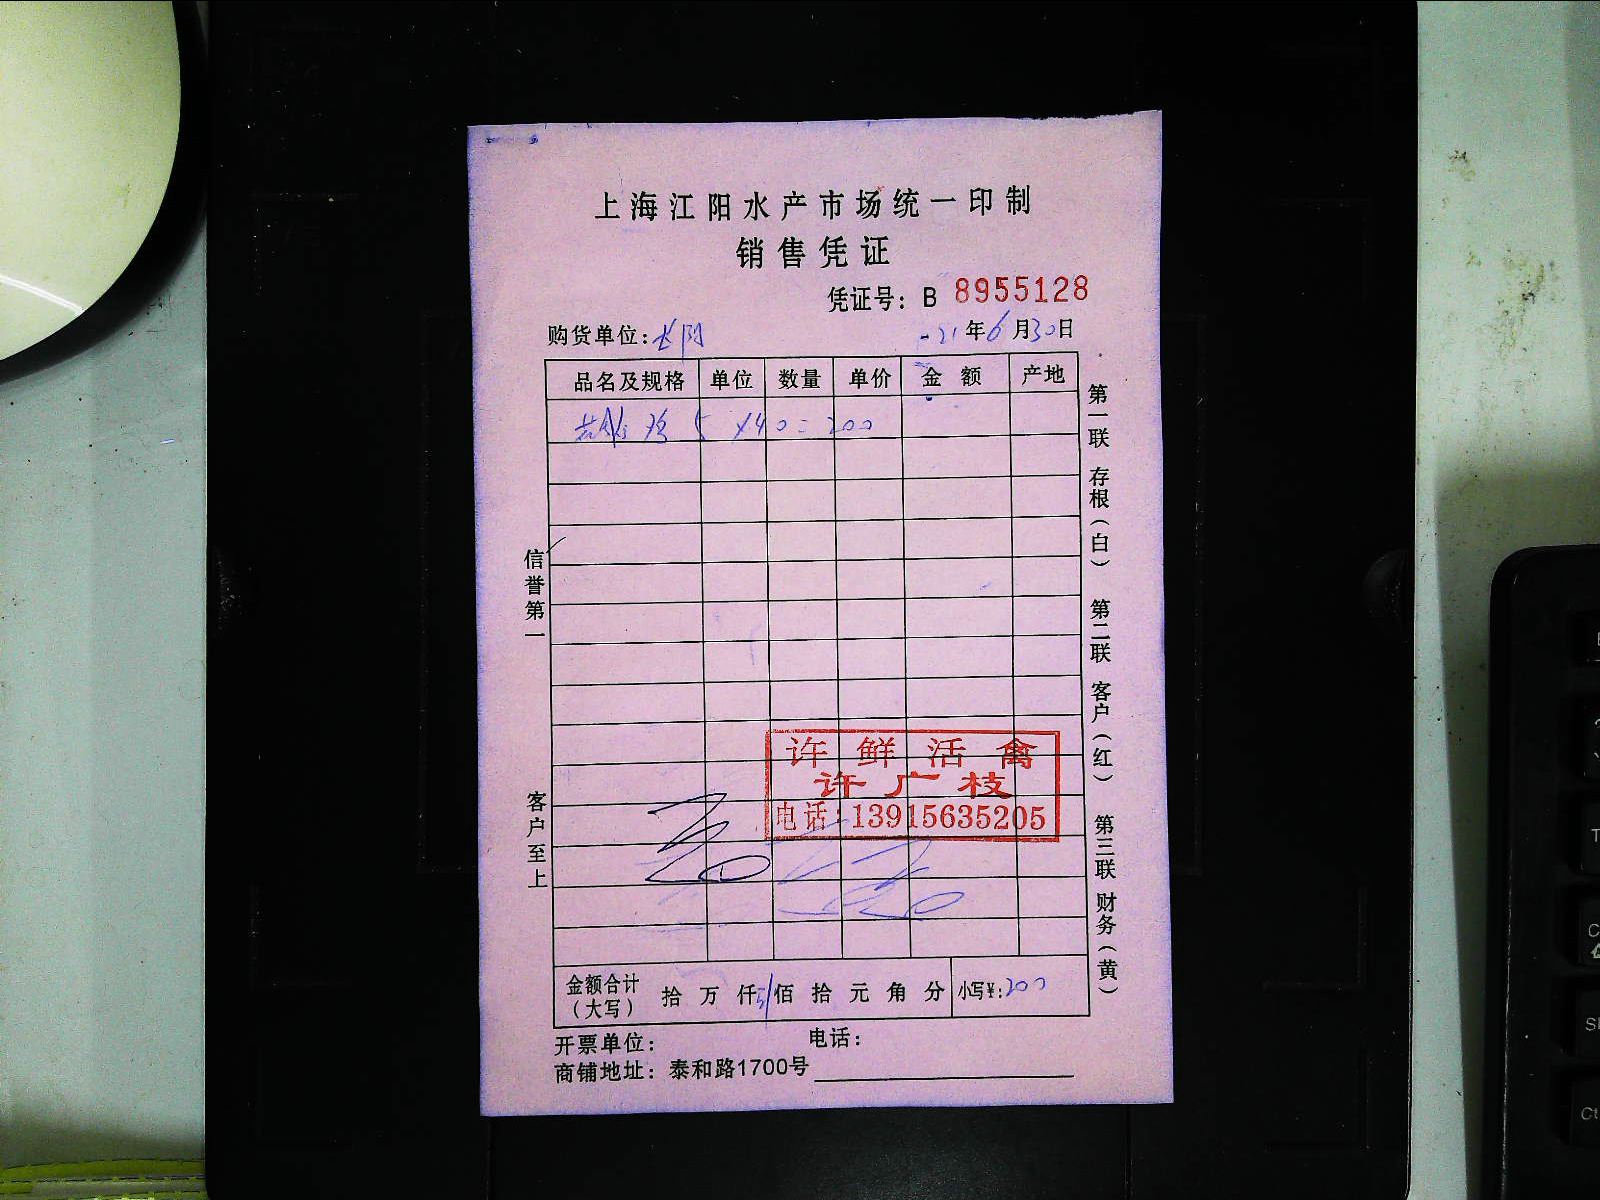 上海江阳水产市场统一印制
销售凭证
凭证号：B 8955128
购货单位：长阳
21年6月30日
品名及规格 单位 数量 单价 金额 产地
鸡 5 ×40=200
第一联 存根（白） 第二联 客户（红） 第三联 财务（黄）
信誉第一
客户至上
许鲜活禽
许广枝
电话：13915635205
金额合计（大写） 拾 万 仟 佰 拾 元 角 分 小写¥:200
开票单位： 电话：
商铺地址：泰和路1700号